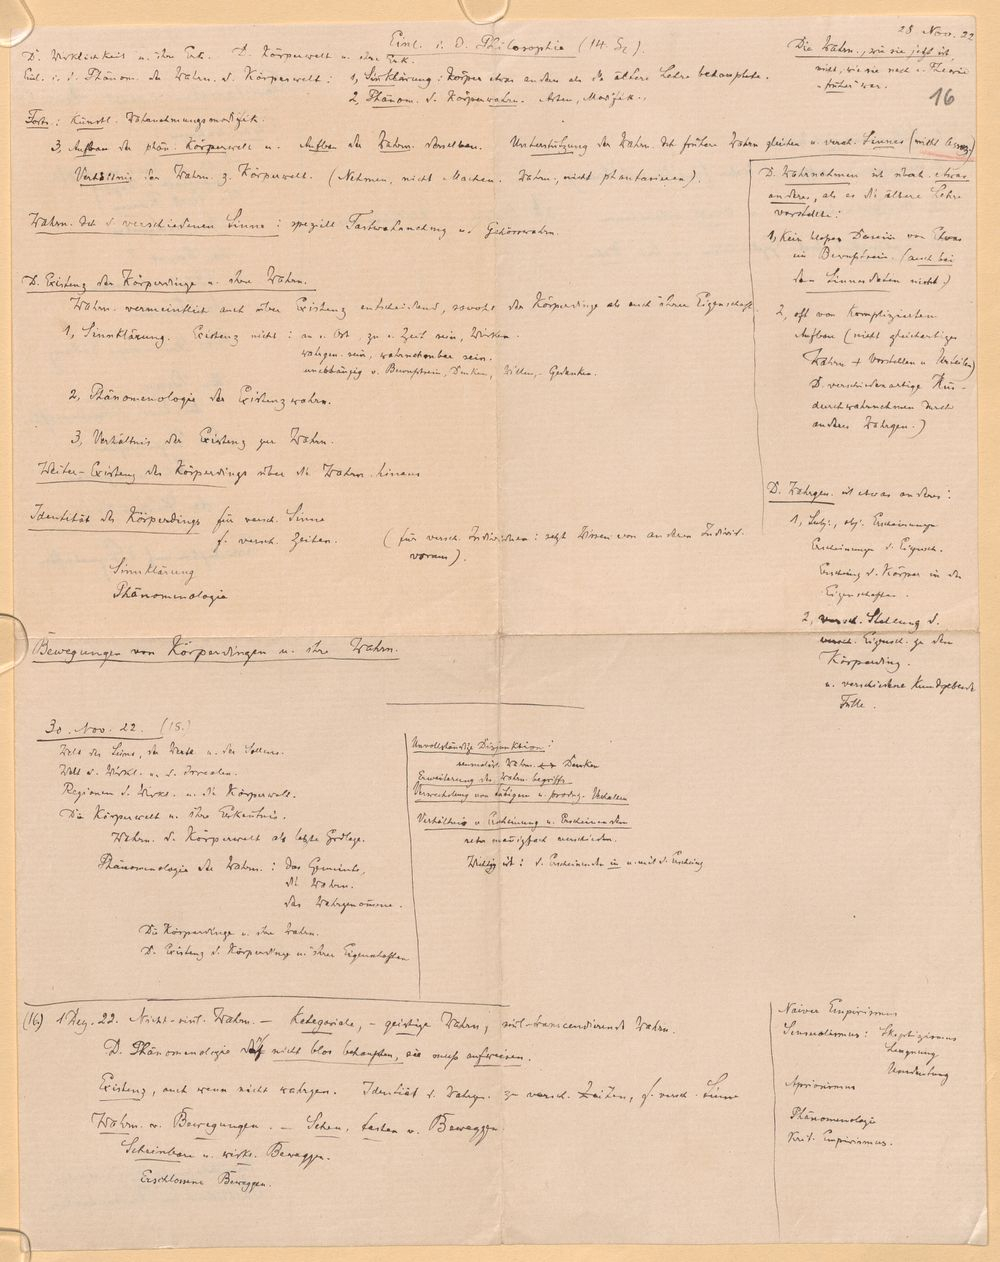 28 Nov. 22
Einl. i. d. Philosophie (14. Sz).
16
D. Wirklichkeit u. ihre Erk. D. Körperwelt u. ihre Erk.
Einl. i. d. Phänom. der Wahrn. d. Körperwelt: 1, Sinnklärung: Körper etwas anderes als die ältere Lehre behauptete.
2, Phänom. d. Körperwahrn. Arten, Modifik..
Forts.: Künstl. Wahrnehmungsmodifik.
3, Aufbau der phän. Körperwelt u. Aufbau der Wahrn. derselben. Unterstützung der Wahrn. dch frühere Wahrn gleichen u. versch. Sinnes (nicht Assoz.)
Verhältnis der Wahrn. z. Körperwelt. (Nehmen, nicht Machen. Wahrn., nicht phantasieren).
Wahrn. dch d. verschiedenen Sinne: speziell Tastwahrnehmung u. Gehörswahrn.
D. Existenz der Körperdinge u. ihre Wahrn.
Wahrn. vermeintlich auch über Existenz entscheidend, sowohl der Körperdinge als auch ihrer Eigenschaft.
1, Sinnklärung. Existenz nicht: an e. Ort, zu e. Zeit sein, Wirken.
wahrgen. sein, wahrnehmbar sein.
unabhängig v. Bewußtsein, Denken, Willen, Gedanken.
2, Phänomenologie der Existenzwahrn.
3, Verhältnis der Existenz zur Wahrn.
Weiter-Existenz des Körperdings über die Wahrn. hinaus
Identität des Körperdings für versch. Sinne
f. versch. Zeiten.
(für versch. Individuen: setzt Wissen von anderen Individ.
voraus).
Sinnklärung
Phänomenologie
Bewegungen von Körperdingen u. ihre Wahrn.
Die Wahrn., wie sie jetzt ist
nicht, wie sie nach e. Theorie
früher war.
D. Wahrnehmen ist überh. etwas
anderes, als es die ältere Lehre
vorstellte:
1, Kein bloßes Dasein von Etwas
im Bewußtsein. (auch bei
den Sinnesdaten nicht)
2, oft von kompliziertem
Aufbau (nicht gleichartiges
Wahrn + Vorstellen u Urteilen)
D. verschiedenartige Hin-
durchwahrnehmen durch
anderes Wahrgen.)
D. Wahrgen. ist etwas anderes:
1, Subj., obj. Erscheinunge
Erscheinunge d. Eigensch.
Erscheing d. Körper in den
Eigenschaften.
2, versch. Stellung d.
versch. Eigensch. zu dem
Körperding.
u. verschiedene Kundgebende
Fülle.
30. Nov. 22. (15.)
Welt des Seins, der Werte u. des Sollens.
Welt d. Wirkl. u. d. Irrealen.
Regionen d. Wirkl. u. die Körperwelt.
Die Körperwelt u. ihre Erkenntnis.
Wahrn. d. Körperwelt als letzte Grdlage.
Phänomenologie der Wahrn.: das Gemeinte,
die Wahrn.
das Wahrgenommene.
Die Körperdinge u. ihre Wahrn.
D. Existenz d. Körperdinge u. ihrer Eigenschaften
Unvollständige Disjunktion:
Wahrn. Denken
Erweiterung des Wahrn. begriffs
Verwechslung von tätigem u. produz. Verhalten
Verhältnis v. Erscheinung u. Erscheinendem
sehr mannigfach verschieden.
Wichtig ist: d. Erscheinende in u. mit d. Erscheing
(16.) 1 Dez. 22. Nicht-sinl. Wahrn. – Kategoriale, – geistige Wahrn, sinl-transcendierende Wahrn.
D. Phänomenologie darf nicht blos behaupten, sie muß aufweisen.
Existenz, auch wenn nicht wahrgen. Identität d. Wahrgn. zu versch. Zeiten, f. versch. Sinne
Wahrn. v. Bewegungen. – Sehen, tasten v. Beweggen.
Scheinbare u. wirkl. Beweggen.
Erschlossene Beweggen.
Naiver Empirismus
Sensualismus: Skeptizismus
Leugnung
Umdeutung
Apriorismus
Phänomenologie
Krit. Empirismus.